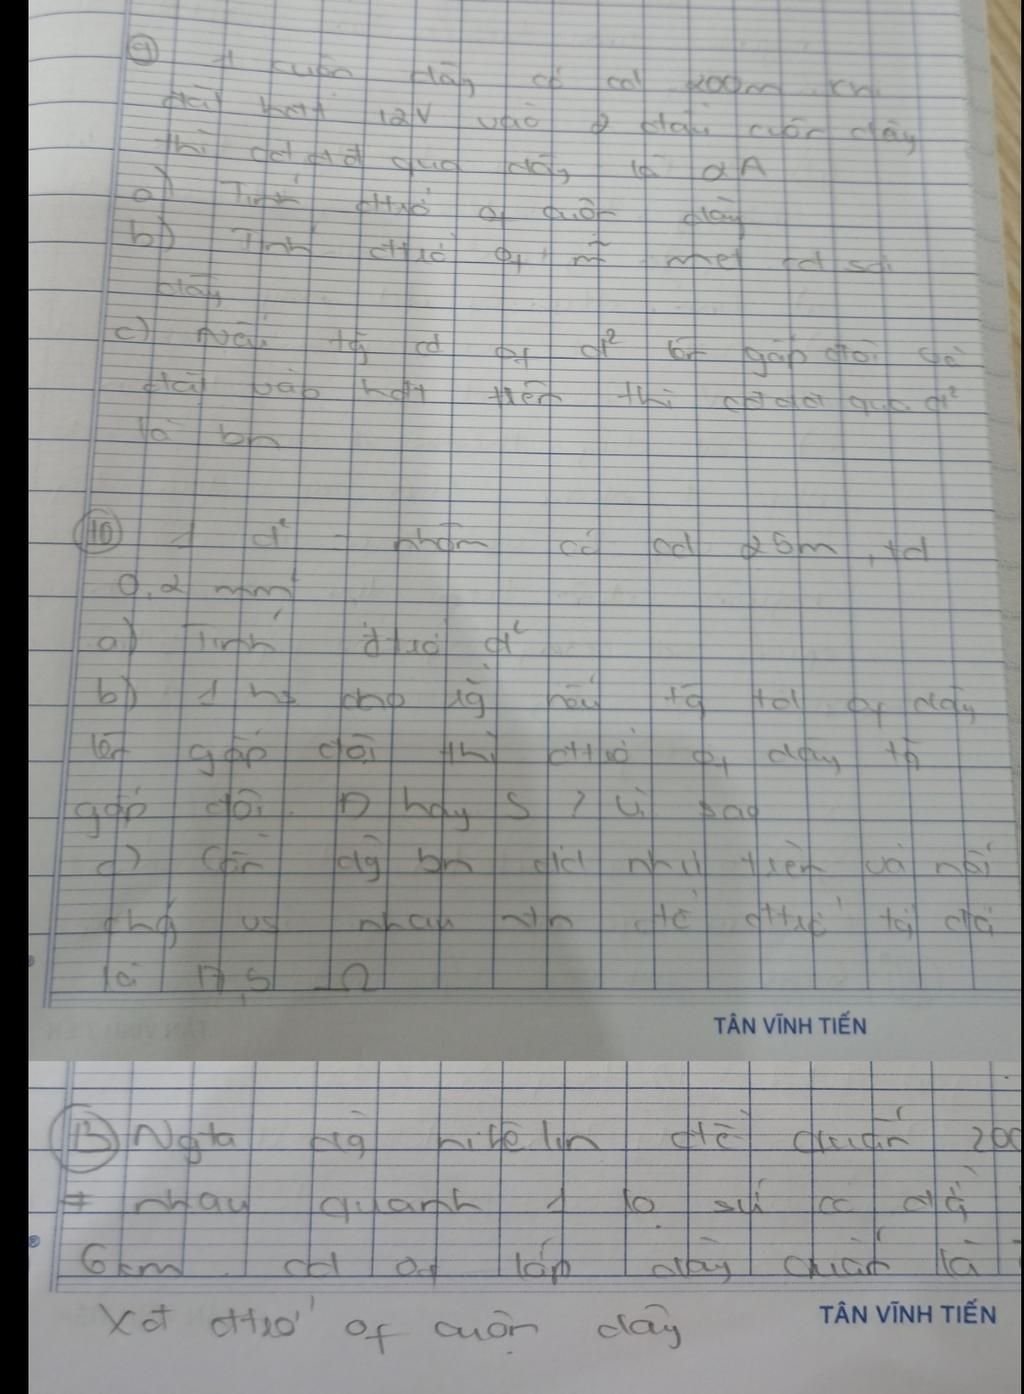 ⑨ 1 cuộn dây có cd 200m khi
đặt hđt 12V vào 2 đầu cuộn dây
thì cđdđ qua dây là 2A
a) Tính đtrở of cuộn dây
b) Tính đtrở of mỗi met
dây
c) Nếu tg cd of d² lên gấp đôi
đặt vào hđt trên thì cđdđ qua d²
là bn
⑩ 1 d² nhôm có cd 25m, td
0,2 mm²
a) Tính đtrở d²
b) 1 hs cho rg nếu tg td of dây
lên gấp đôi thì đtrở of dây tg
gấp đôi. Đ hay S? Vì sao
c) Cần dg bn như trên và nối
chg vs nhau ntn để đtrở
là Ω
TÂN VĨNH TIẾN
⑬ Ngta dg để quấn 200
nhau quanh 1 lõi sứ
6cm. cd of lớp dây quấn là
Xđ đtrở of cuộn dây
TÂN VĨNH TIẾN